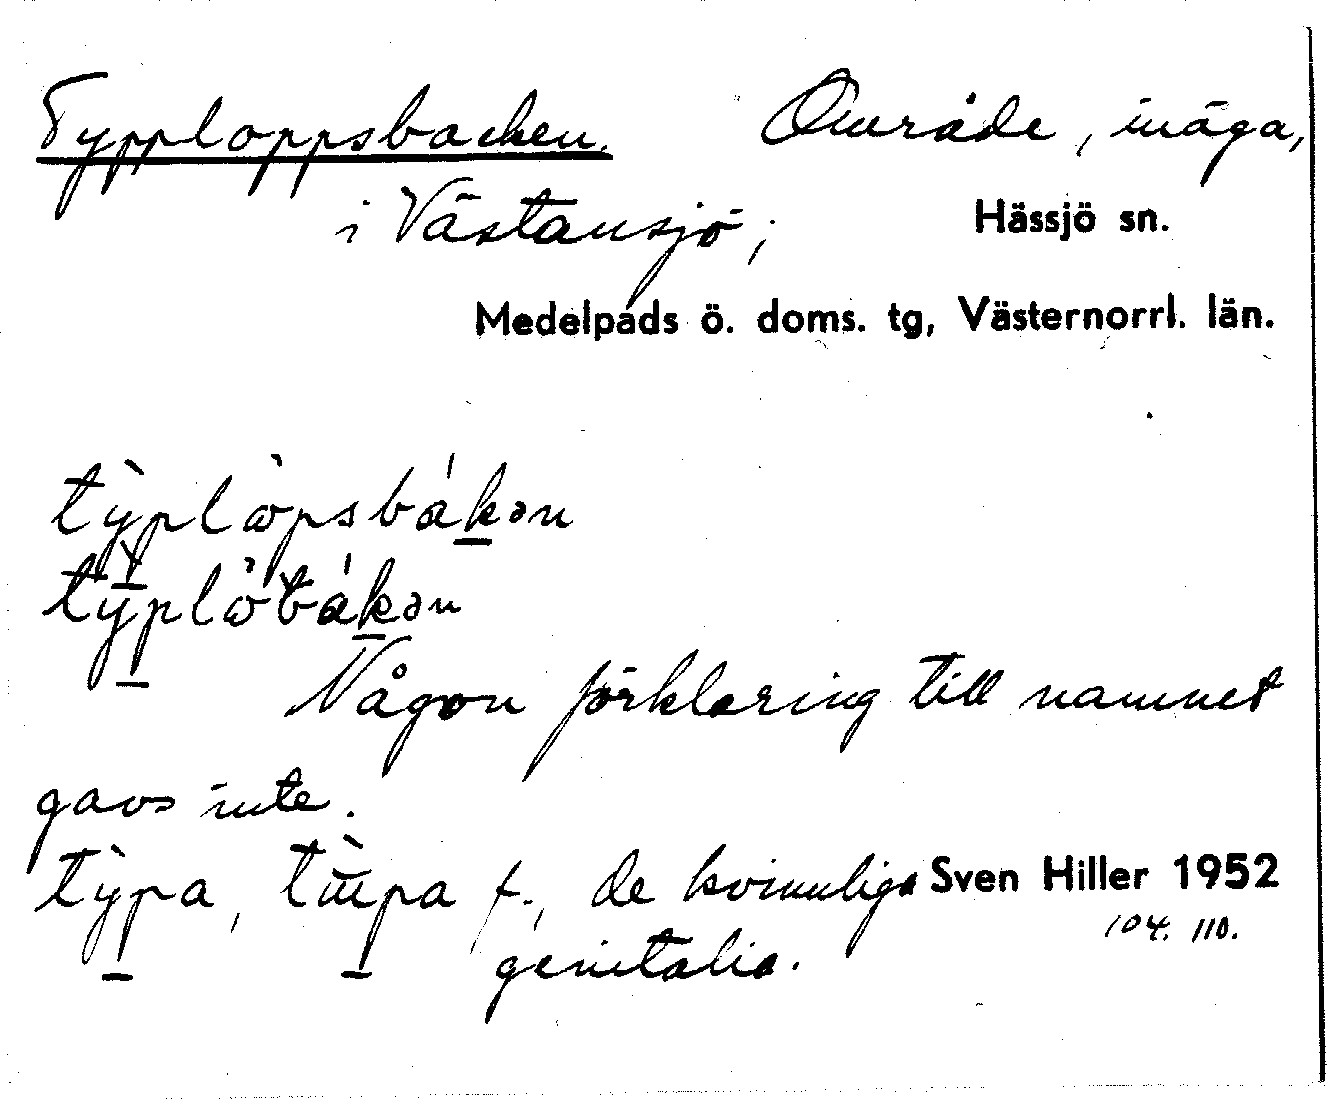 Typploppsbacken. Område, inäga,
i Västansjö, Hässjö sn.
Medelpads ö. doms. tg, Västernorrl. län.
Någon förklaring till namnet
gavs inte.
f., de kvinnliga Sven Hiller 1952
genitalia. 104. 110.